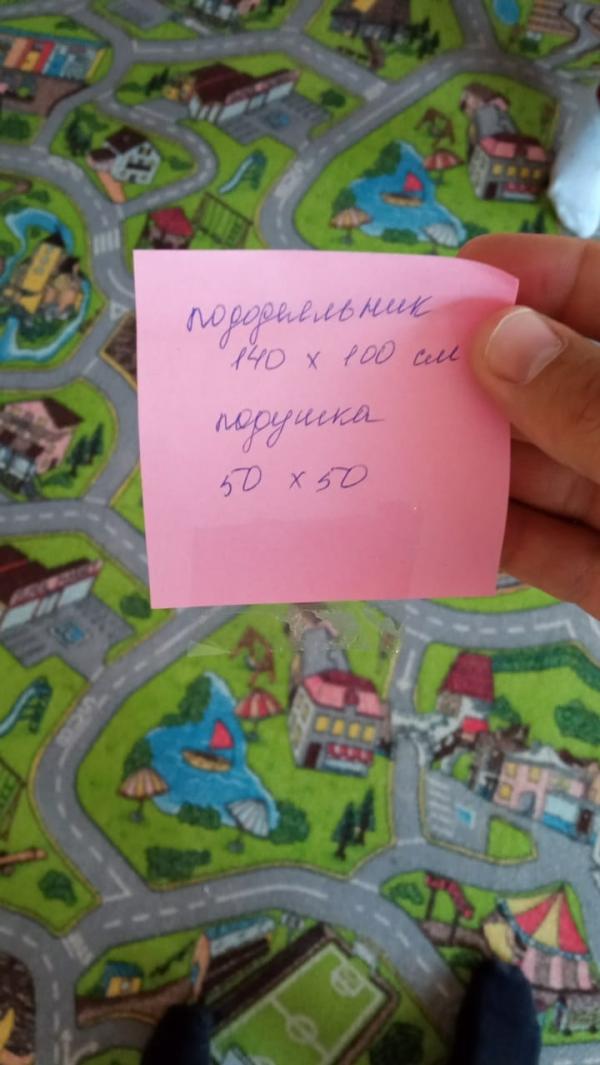 пододеяльник
140 х 100 см
подушка
50 х 50